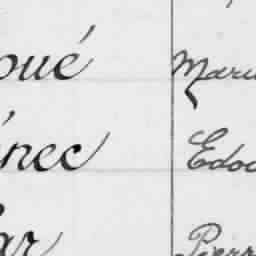 oué Marie
énec Edou
ar Pierr